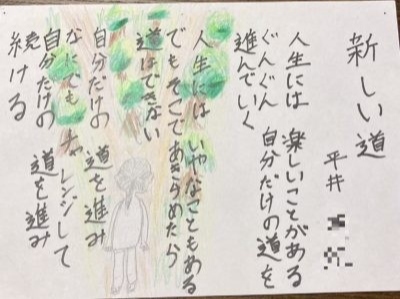 新しい道
平井
人生には 楽しいことがある
ぐんぐん 自分だけの道を
進んでいく
人生には いやなこともある
でもそこであきらめたら
道はできない
自分だけの 道を進み
なにでもチャレンジして
自分だけの 道を進み
続ける